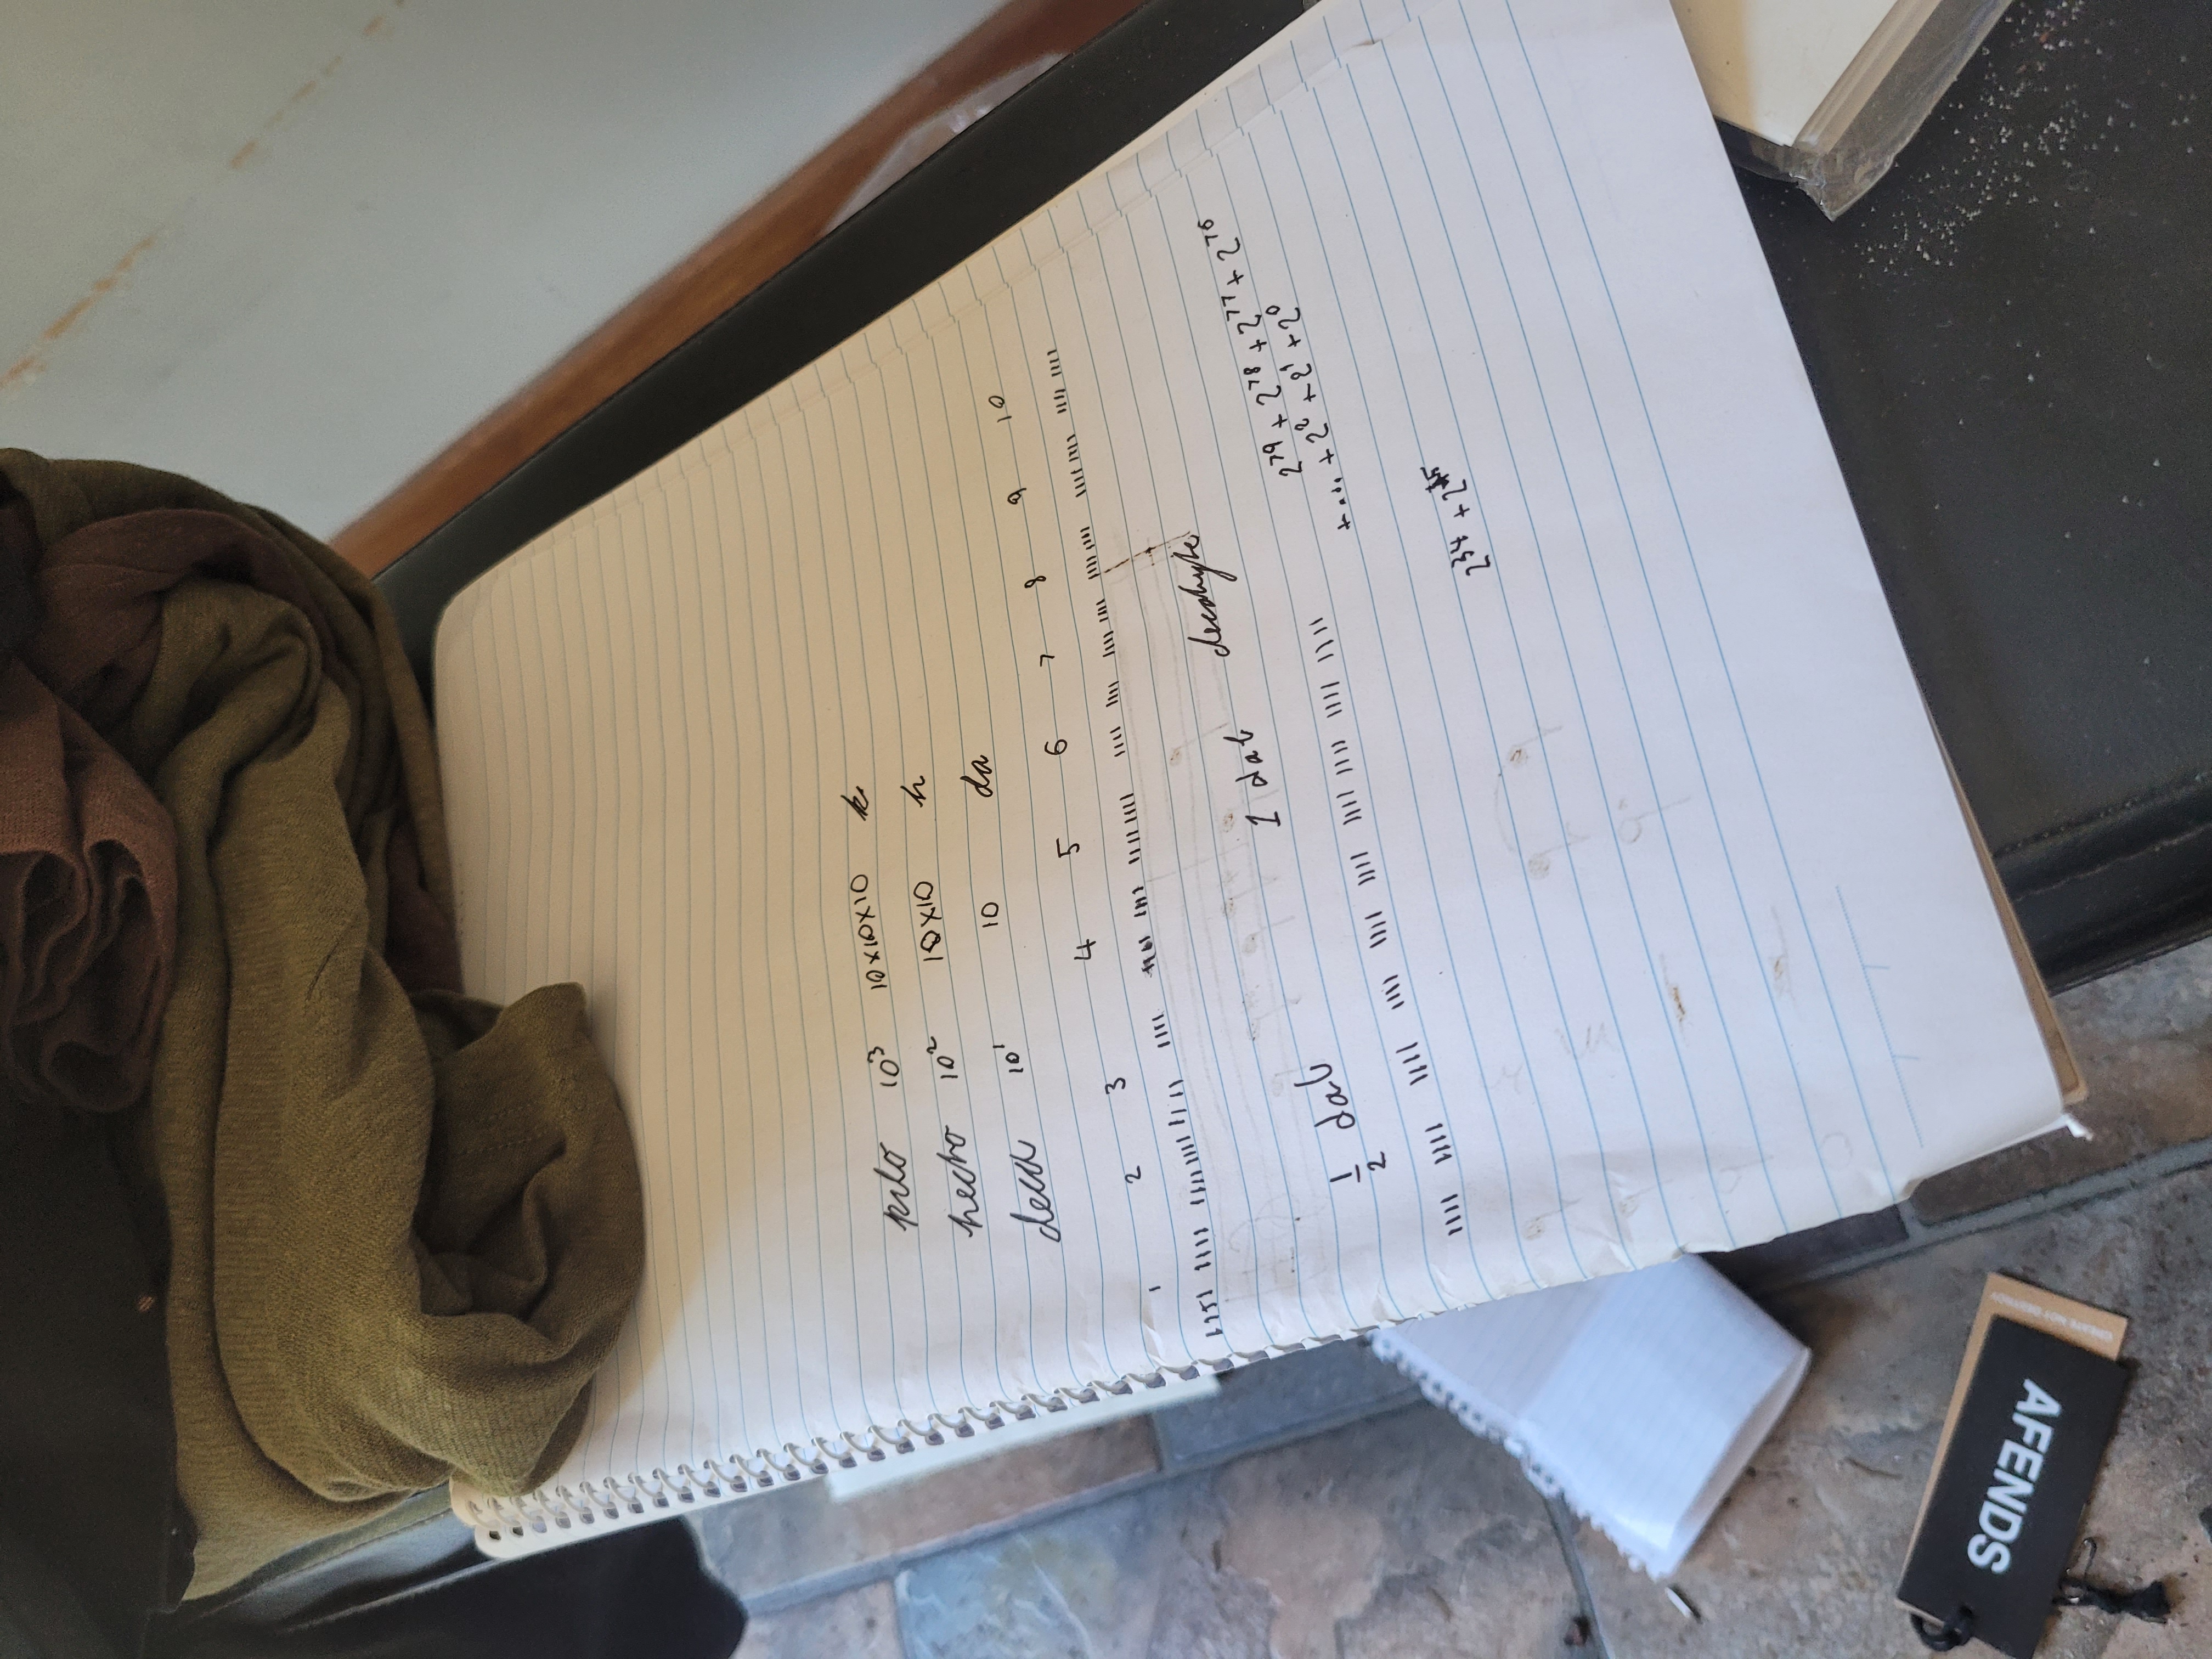 kilo 10³ 10×10×10 k
hecto 10² 10×10 h
deca 10¹ 10 da
1 2 3 4 5 6 7 8 9 10
1 dab decabyte
½ dab
2⁷⁹ + 2⁷⁸ + 2⁷⁷ + 2⁷⁶
+ ... + 2² + 2¹ + 2⁰
2³⁴ +
AFENDS